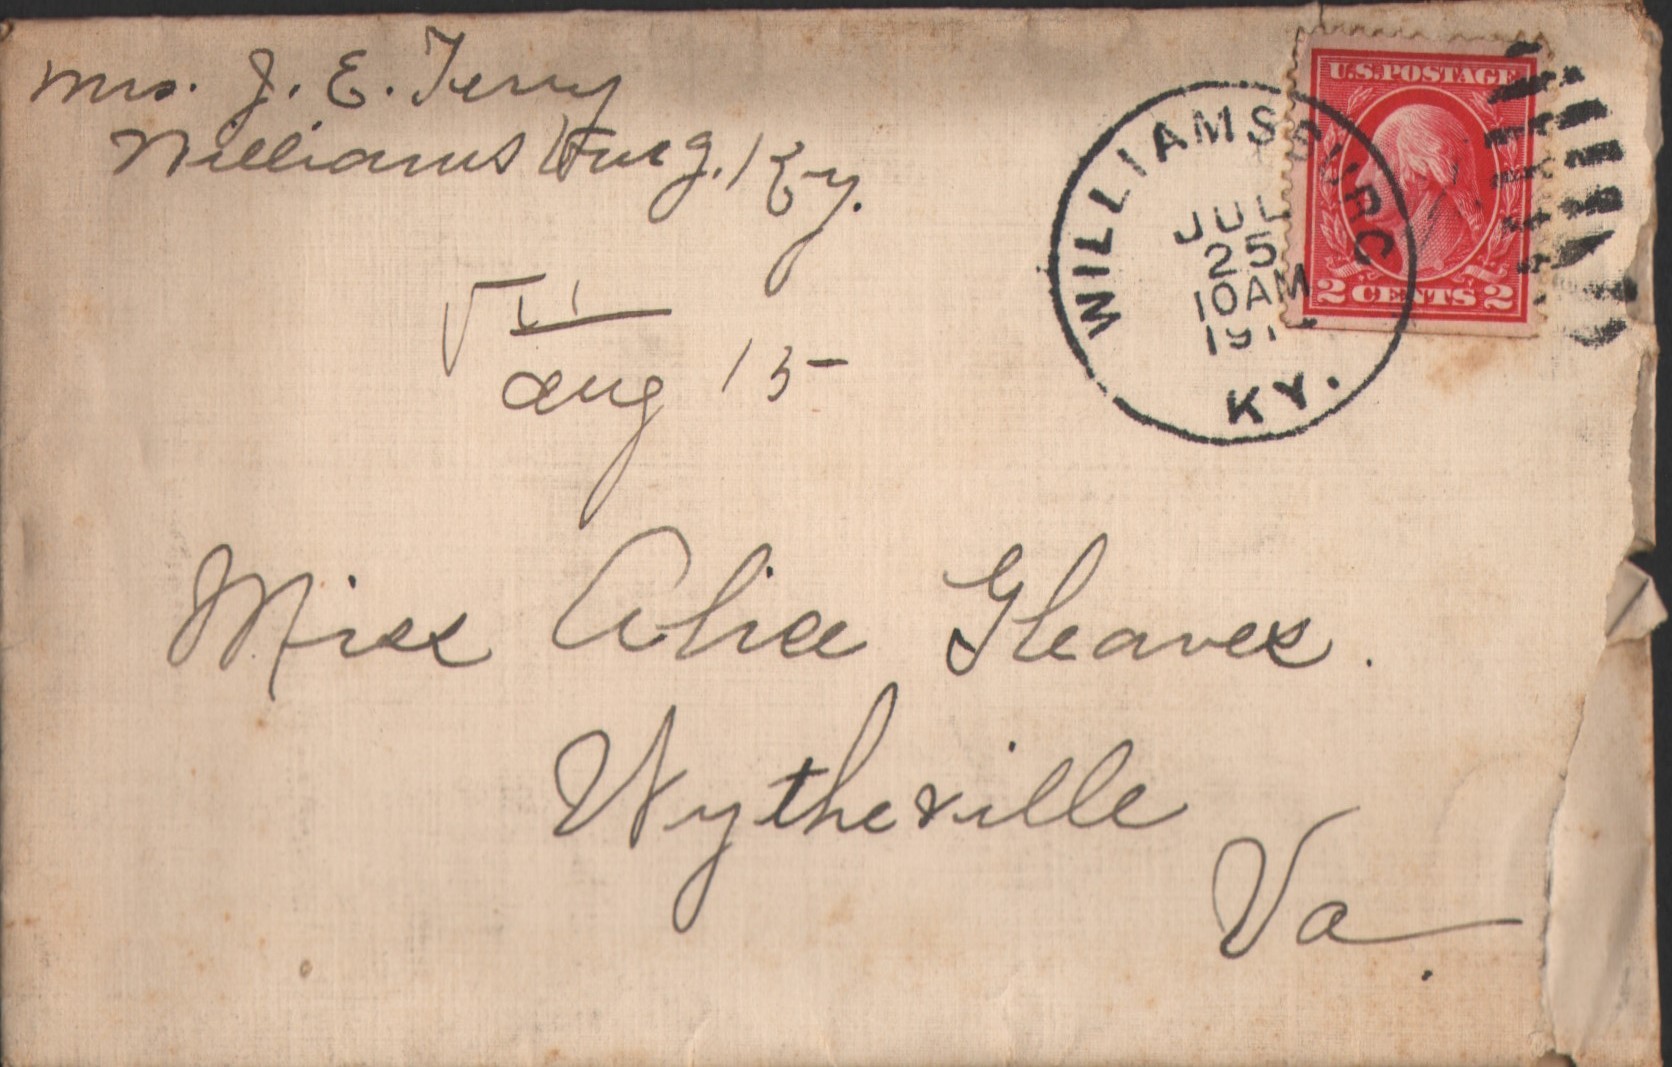 Mrs. J. E. Terry
Williamsburg, Ky.
Aug 15
WILLIAMSBURG
JUL
25
10AM
191
KY.
U.S. POSTAGE
2 CENTS 2
Miss Alice Gleaves.
Wytheville
Va.